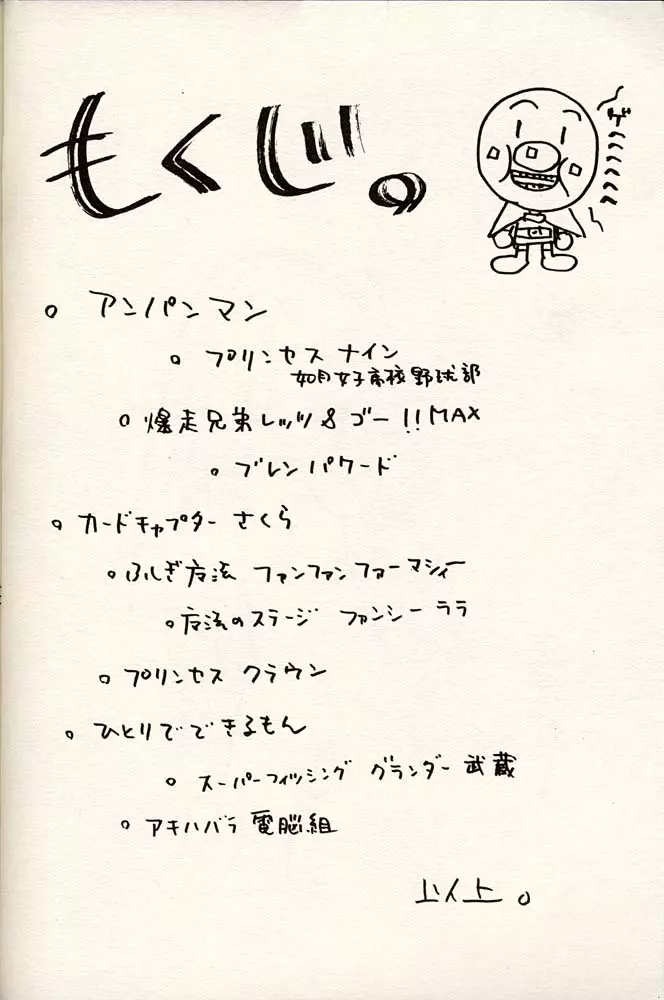 もくじ。
ゲ
アンパンマン
プリンセス ナイン
如月女子高校野球部
爆走兄弟レッツ&ゴー!!MAX
ブレンパワード
カードキャプター さくら
ふしぎ魔法 ファンファンファーマシィー
魔法のステージ ファンシーララ
プリンセス クラウン
ひとりでできるもん
スーパーフィッシング グランダー 武蔵
アキハバラ電脳組
以上。